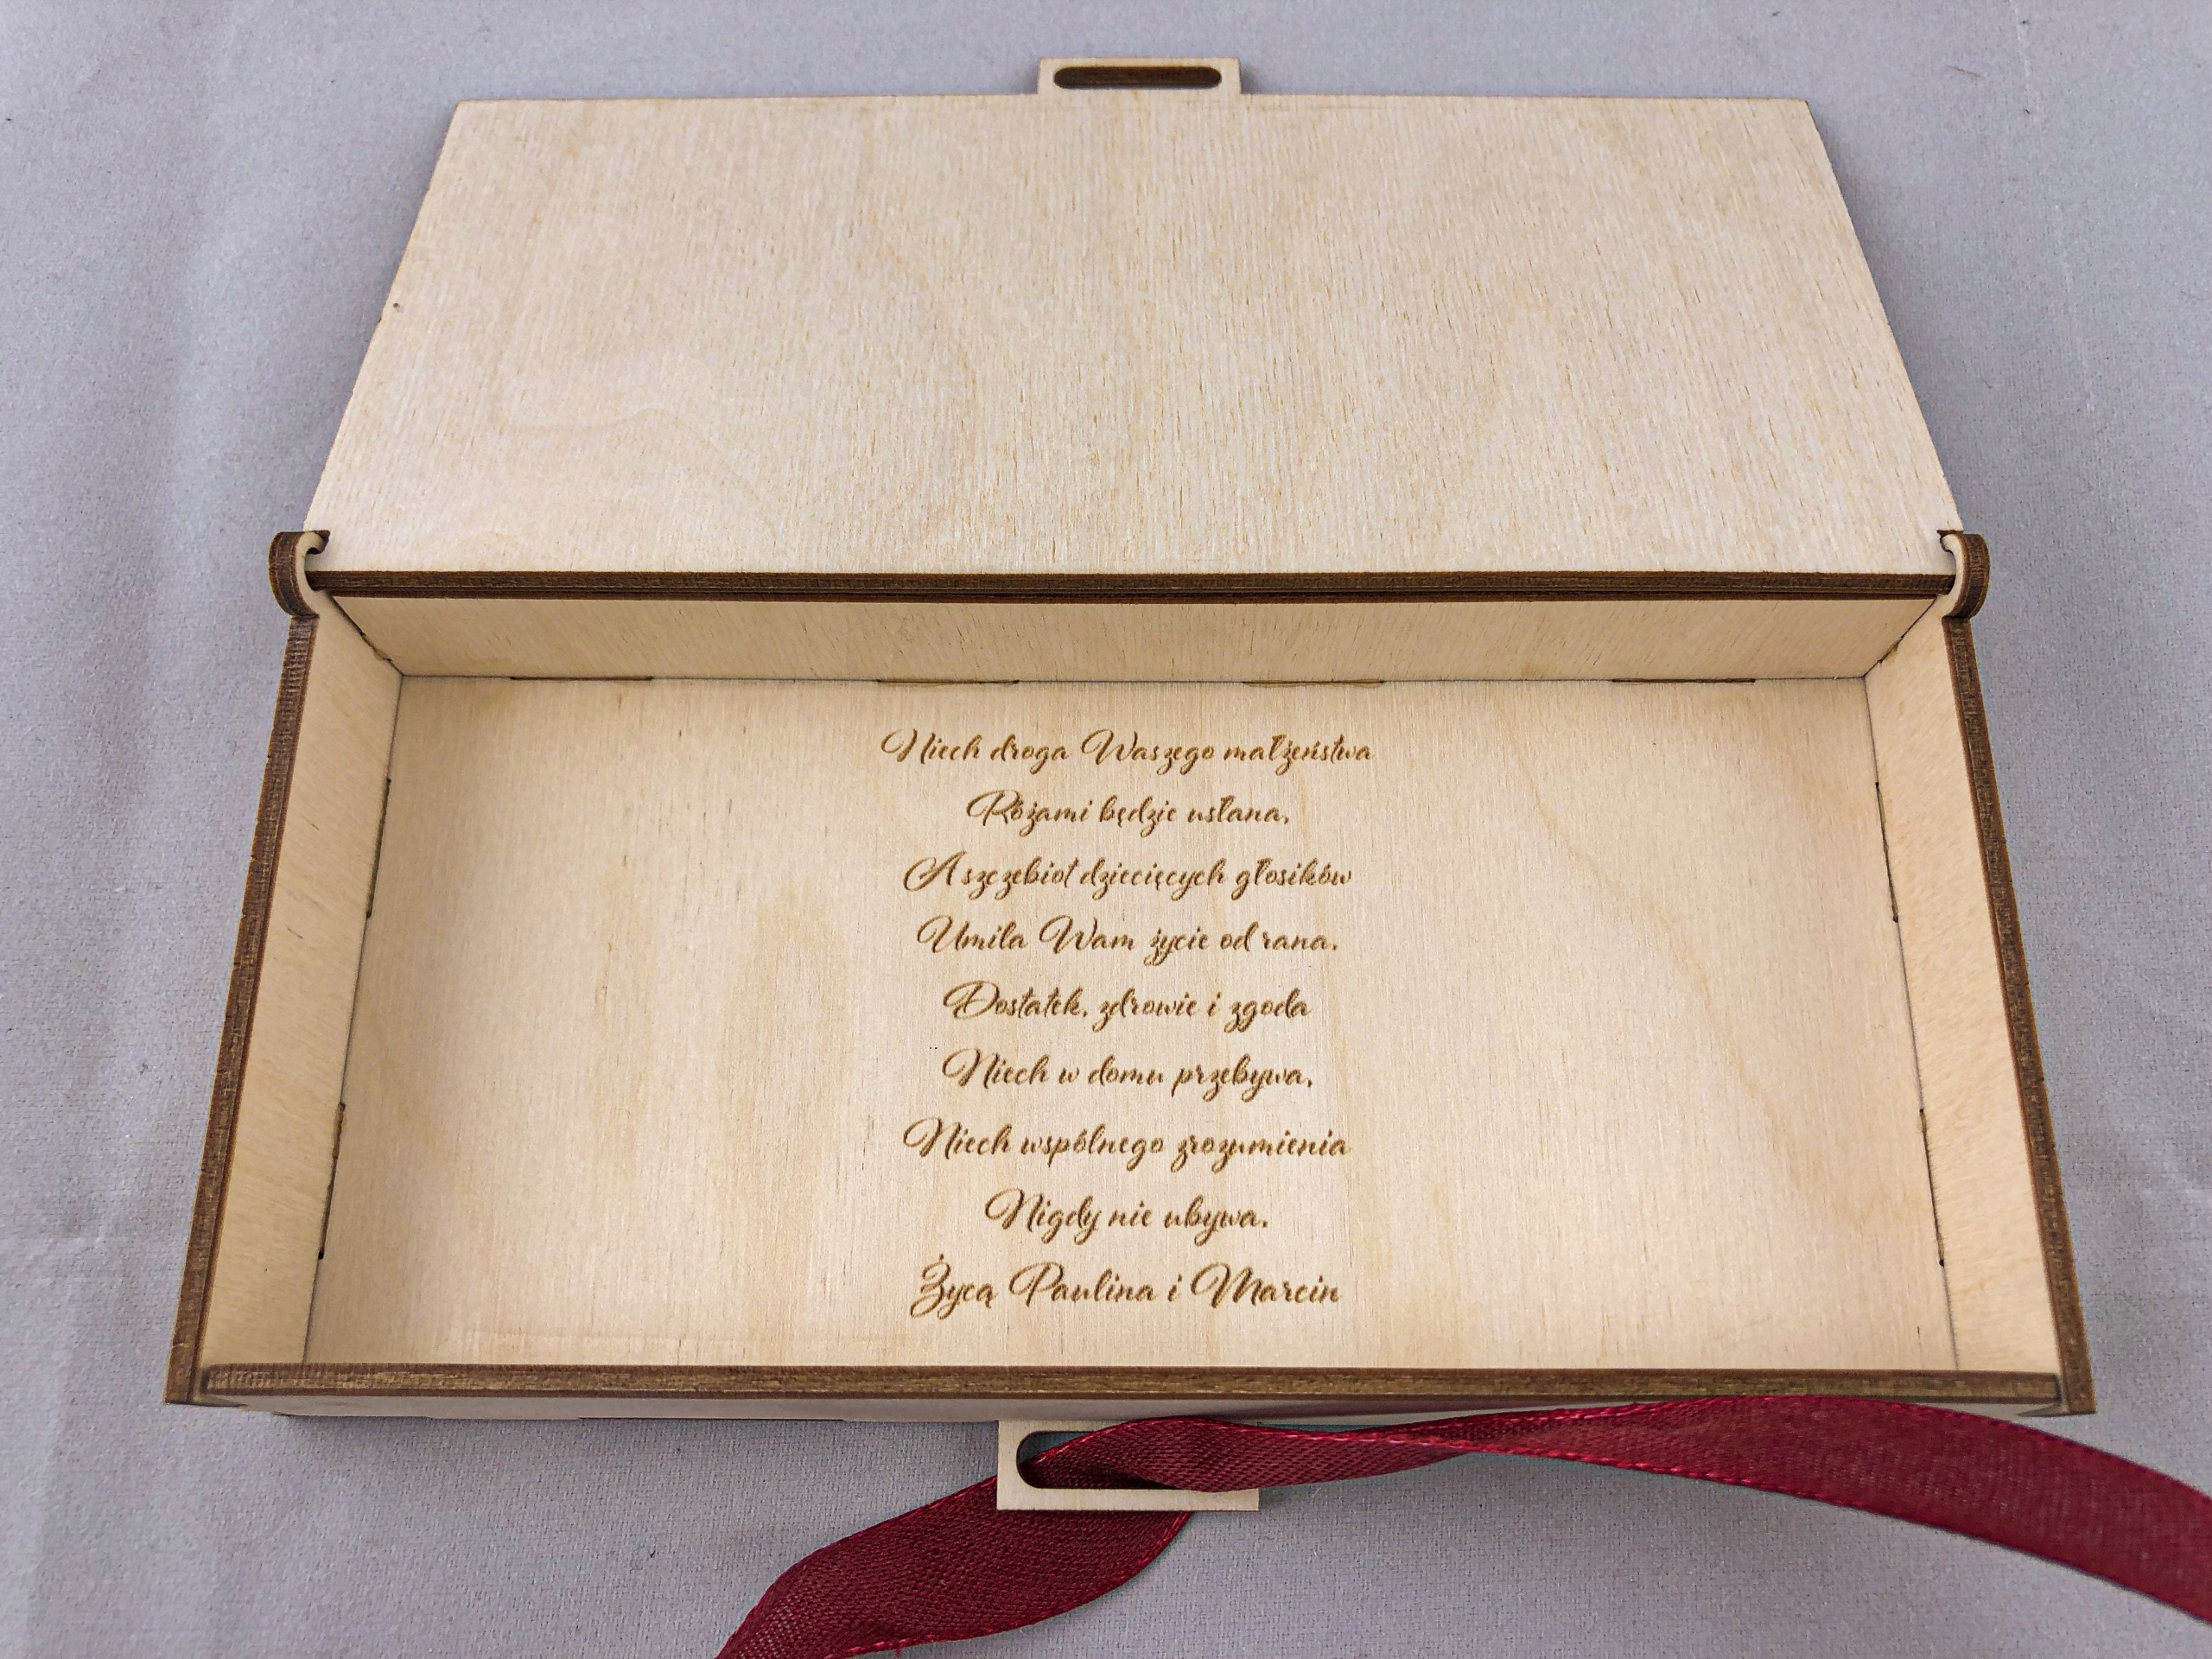 Niech droga Waszego małżeństwa
Różami będzie usłana,
A szczebiot dziecięcych głosików
Umila Wam życie od rana.
Dostatek, zdrowie i zgoda
Niech w domu przebywa,
Niech wspólnego zrozumienia
Nigdy nie ubywa.
Życą Paulina i Marcin